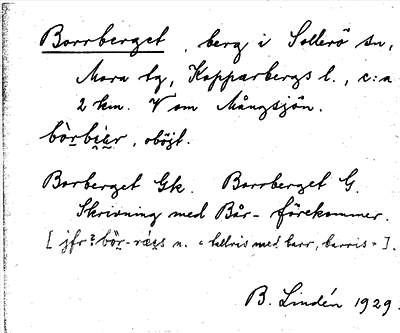 Borrberget, berg i Sollerö sn,
Mora tg, Kopparbergs l., c:a
2 km. V om Mångsjön.
bòrbiạr, oböjt.
Borberget Gk. Borrberget G.
Skrivning med Bår- förekommer.
[jfr ? bör- n. "tallris med barr, barris"].
B. Lindén 1929.